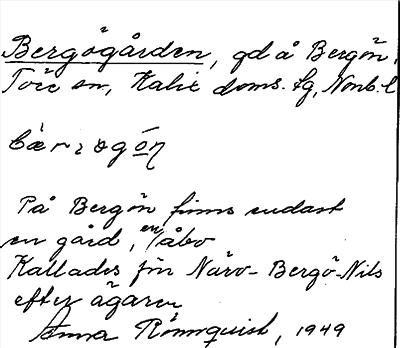 Bergögården, gd å Bergön,
Töre sn, Kalix doms. tg, Norrb. l
På Bergön finns endast
en gård, en åbo
Kallades för Närv-Bergö-Nils
efter ägaren
Anna Rönnquist, 1949